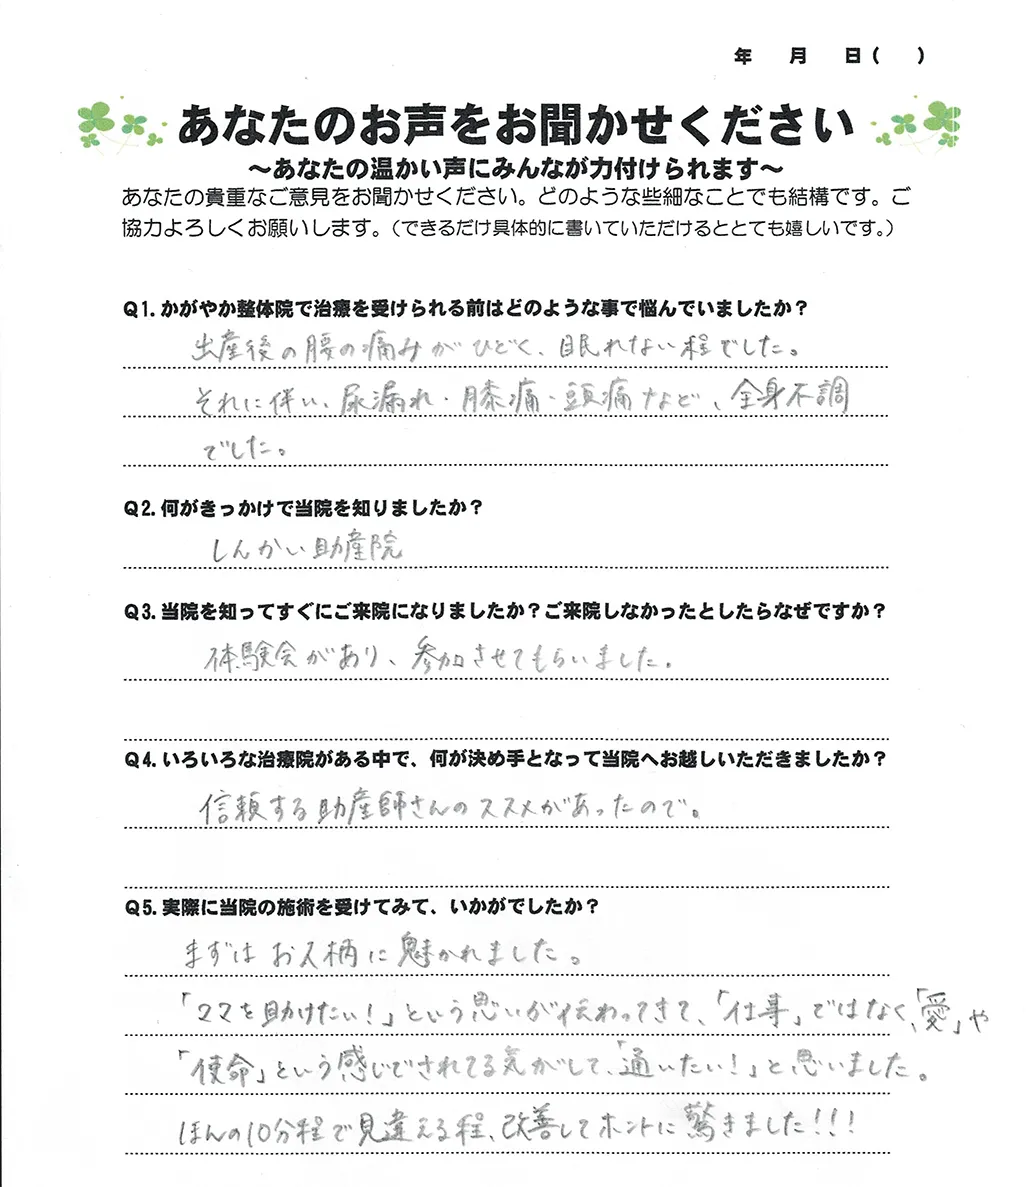 年　月　日(　)
あなたのお声をお聞かせください
～あなたの温かい声にみんなが力付けられます～
あなたの貴重なご意見をお聞かせください。どのような些細なことでも結構です。ご
協力よろしくお願いします。（できるだけ具体的に書いていただけるととても嬉しいです。）
Q1. かがやか整体院で治療を受けられる前はどのような事で悩んでいましたか？
出産後の腰の痛みがひどく、眠れない程でした。
それに伴い、尿漏れ・膝痛・頭痛など、全身不調
でした。
Q2. 何がきっかけで当院を知りましたか？
しんかい助産院
Q3. 当院を知ってすぐにご来院になりましたか？ご来院しなかったとしたらなぜですか？
体験会があり、参加させてもらいました。
Q4. いろいろな治療院がある中で、何が決め手となって当院へお越しいただきましたか？
信頼する助産師さんのススメがあったので。
Q5. 実際に当院の施術を受けてみて、いかがでしたか？
まずはお人柄に魅かれました。
「ママを助けたい！」という思いが伝わってきて、「仕事」ではなく、「愛」や
「使命」という感じでされてる気がして、「通いたい！」と思いました。
ほんの10分程で見違える程、改善してホントに驚きました！！！